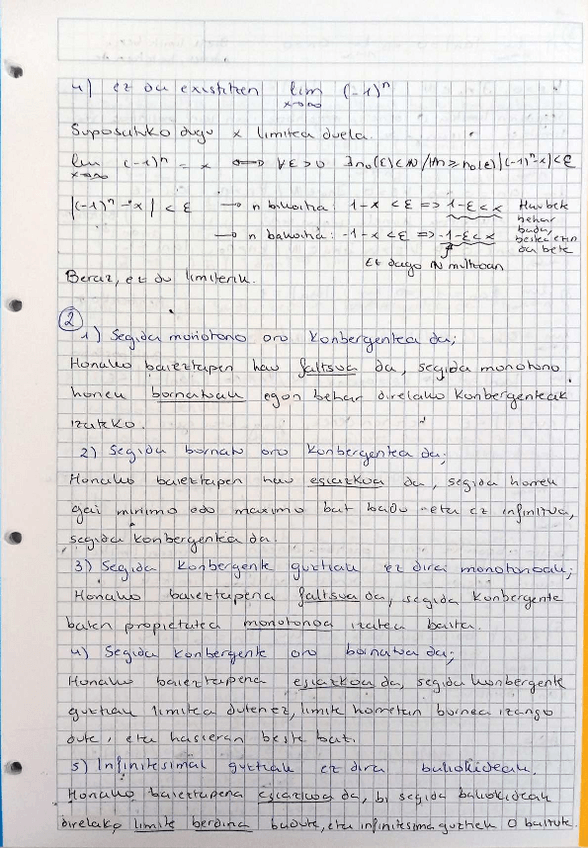 4) ez da existitzen lim (-1)ⁿ
x→∞
Suposatuko dugu x limitea duela.
lim (-1)ⁿ = x ⟺ ∀ε>0 ∃n₀(ε)∈ℕ / ∀n≥n₀(ε) |(-1)ⁿ-x|<ε
x→∞
|(-1)ⁿ-x| < ε → n bikoitia: 1-x<ε => 1-ε<x Hau bete
behar
→ n bakoitia: -1-x<ε => -1-ε<x badu,
beste ezin
da bete
Ez dago ℕ multzoan
Beraz, ez du limiterik.
2
1) Segida monotono oro konbergentea da;
Honako baieztapen hau faltsua da, segida monotono
honek bornatuak egon behar direlako konbergenteak
izateko.
2) Segida bornatu oro konbergentea da;
Honako baieztapen hau egiazkoa da, segida horrek
gai minimo edo maximo bat badu eta ez infinitua,
segida konbergentea da.
3) Segida konbergente guztiak ez dira monotonoak;
Honako baieztapena faltsua da, segida konbergente
baten propietatea monotonoa izatea baita.
4) Segida konbergente oro bornatua da;
Honako baieztapena egiazkoa da, segida konbergente
guztiak limitea dutenez, limite horretan bornea izango
dute, eta hasieran beste bat.
5) Infinitesimal guztiak ez dira baliokideak.
Honako baieztapena egiazkoa da, bi segida baliokideak
direlako limite berdina badute, eta infinitesima guztiek 0 baitute.